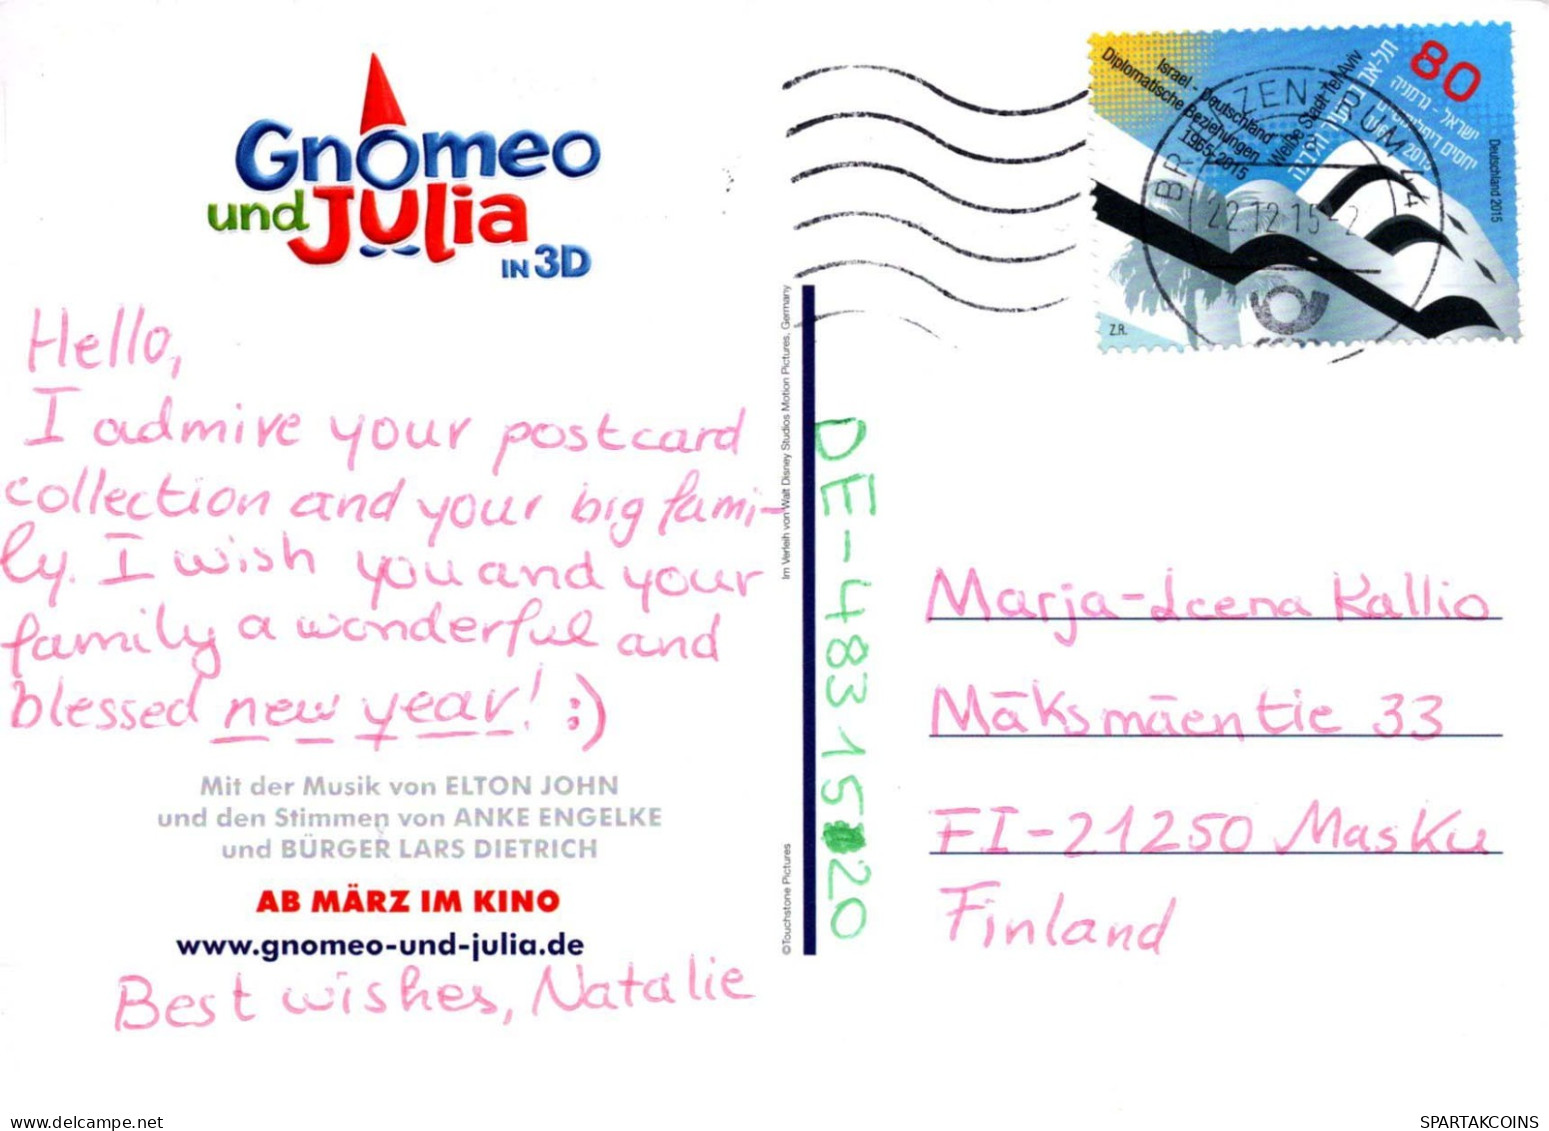 Gnomeo
und Julia
IN 3D
Hello,
I admire your postcard
collection and your big fami-
ly. I wish you and your
family a wonderful and
blessed new year! :)
Mit der Musik von ELTON JOHN
und den Stimmen von ANKE ENGELKE
und BÜRGER LARS DIETRICH
AB MÄRZ IM KINO
www.gnomeo-und-julia.de
Best wishes, Natalie
Im Verleih von Walt Disney Studios Motion Pictures, Germany
©Touchstone Pictures
DE-4831520
80
תל-אביב
ישראל - גרמניה
Israel - Deutschland
Diplomatische Beziehungen
1965-2015
Weiße Stadt Tel Aviv
Deutschland 2015
Z.R.
BRIEFZENTRUM 44
22.12.15-2
Marja-Leena Kallio
Mäksmäentie 33
FI-21250 Masku
Finland
www.delcampe.net
SPARTAKCOINS